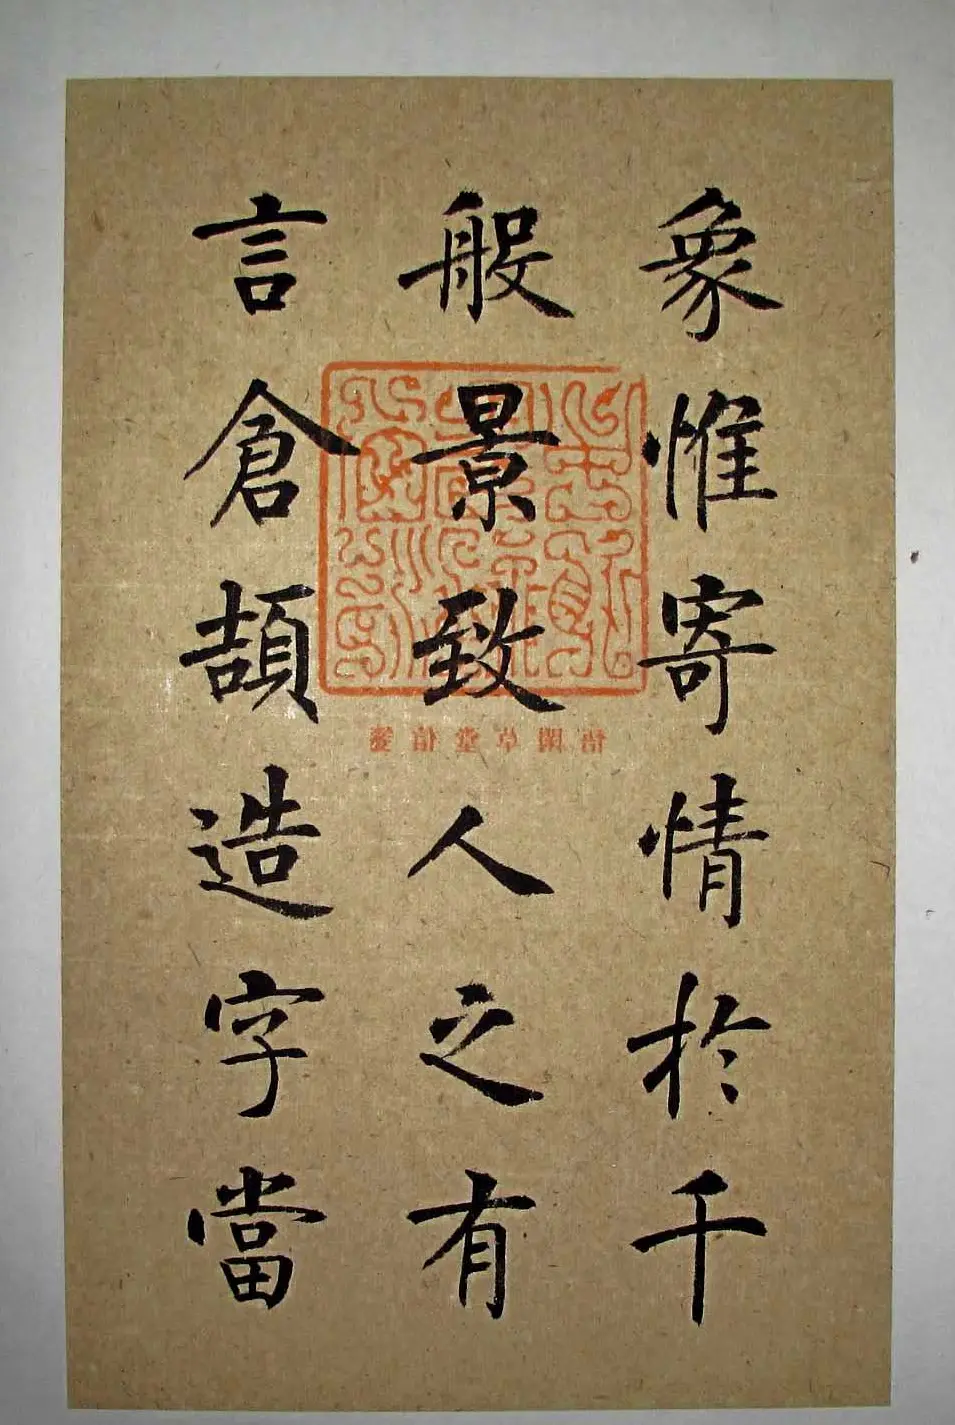 象惟寄情於千
般景致人之有
言倉頡造字當